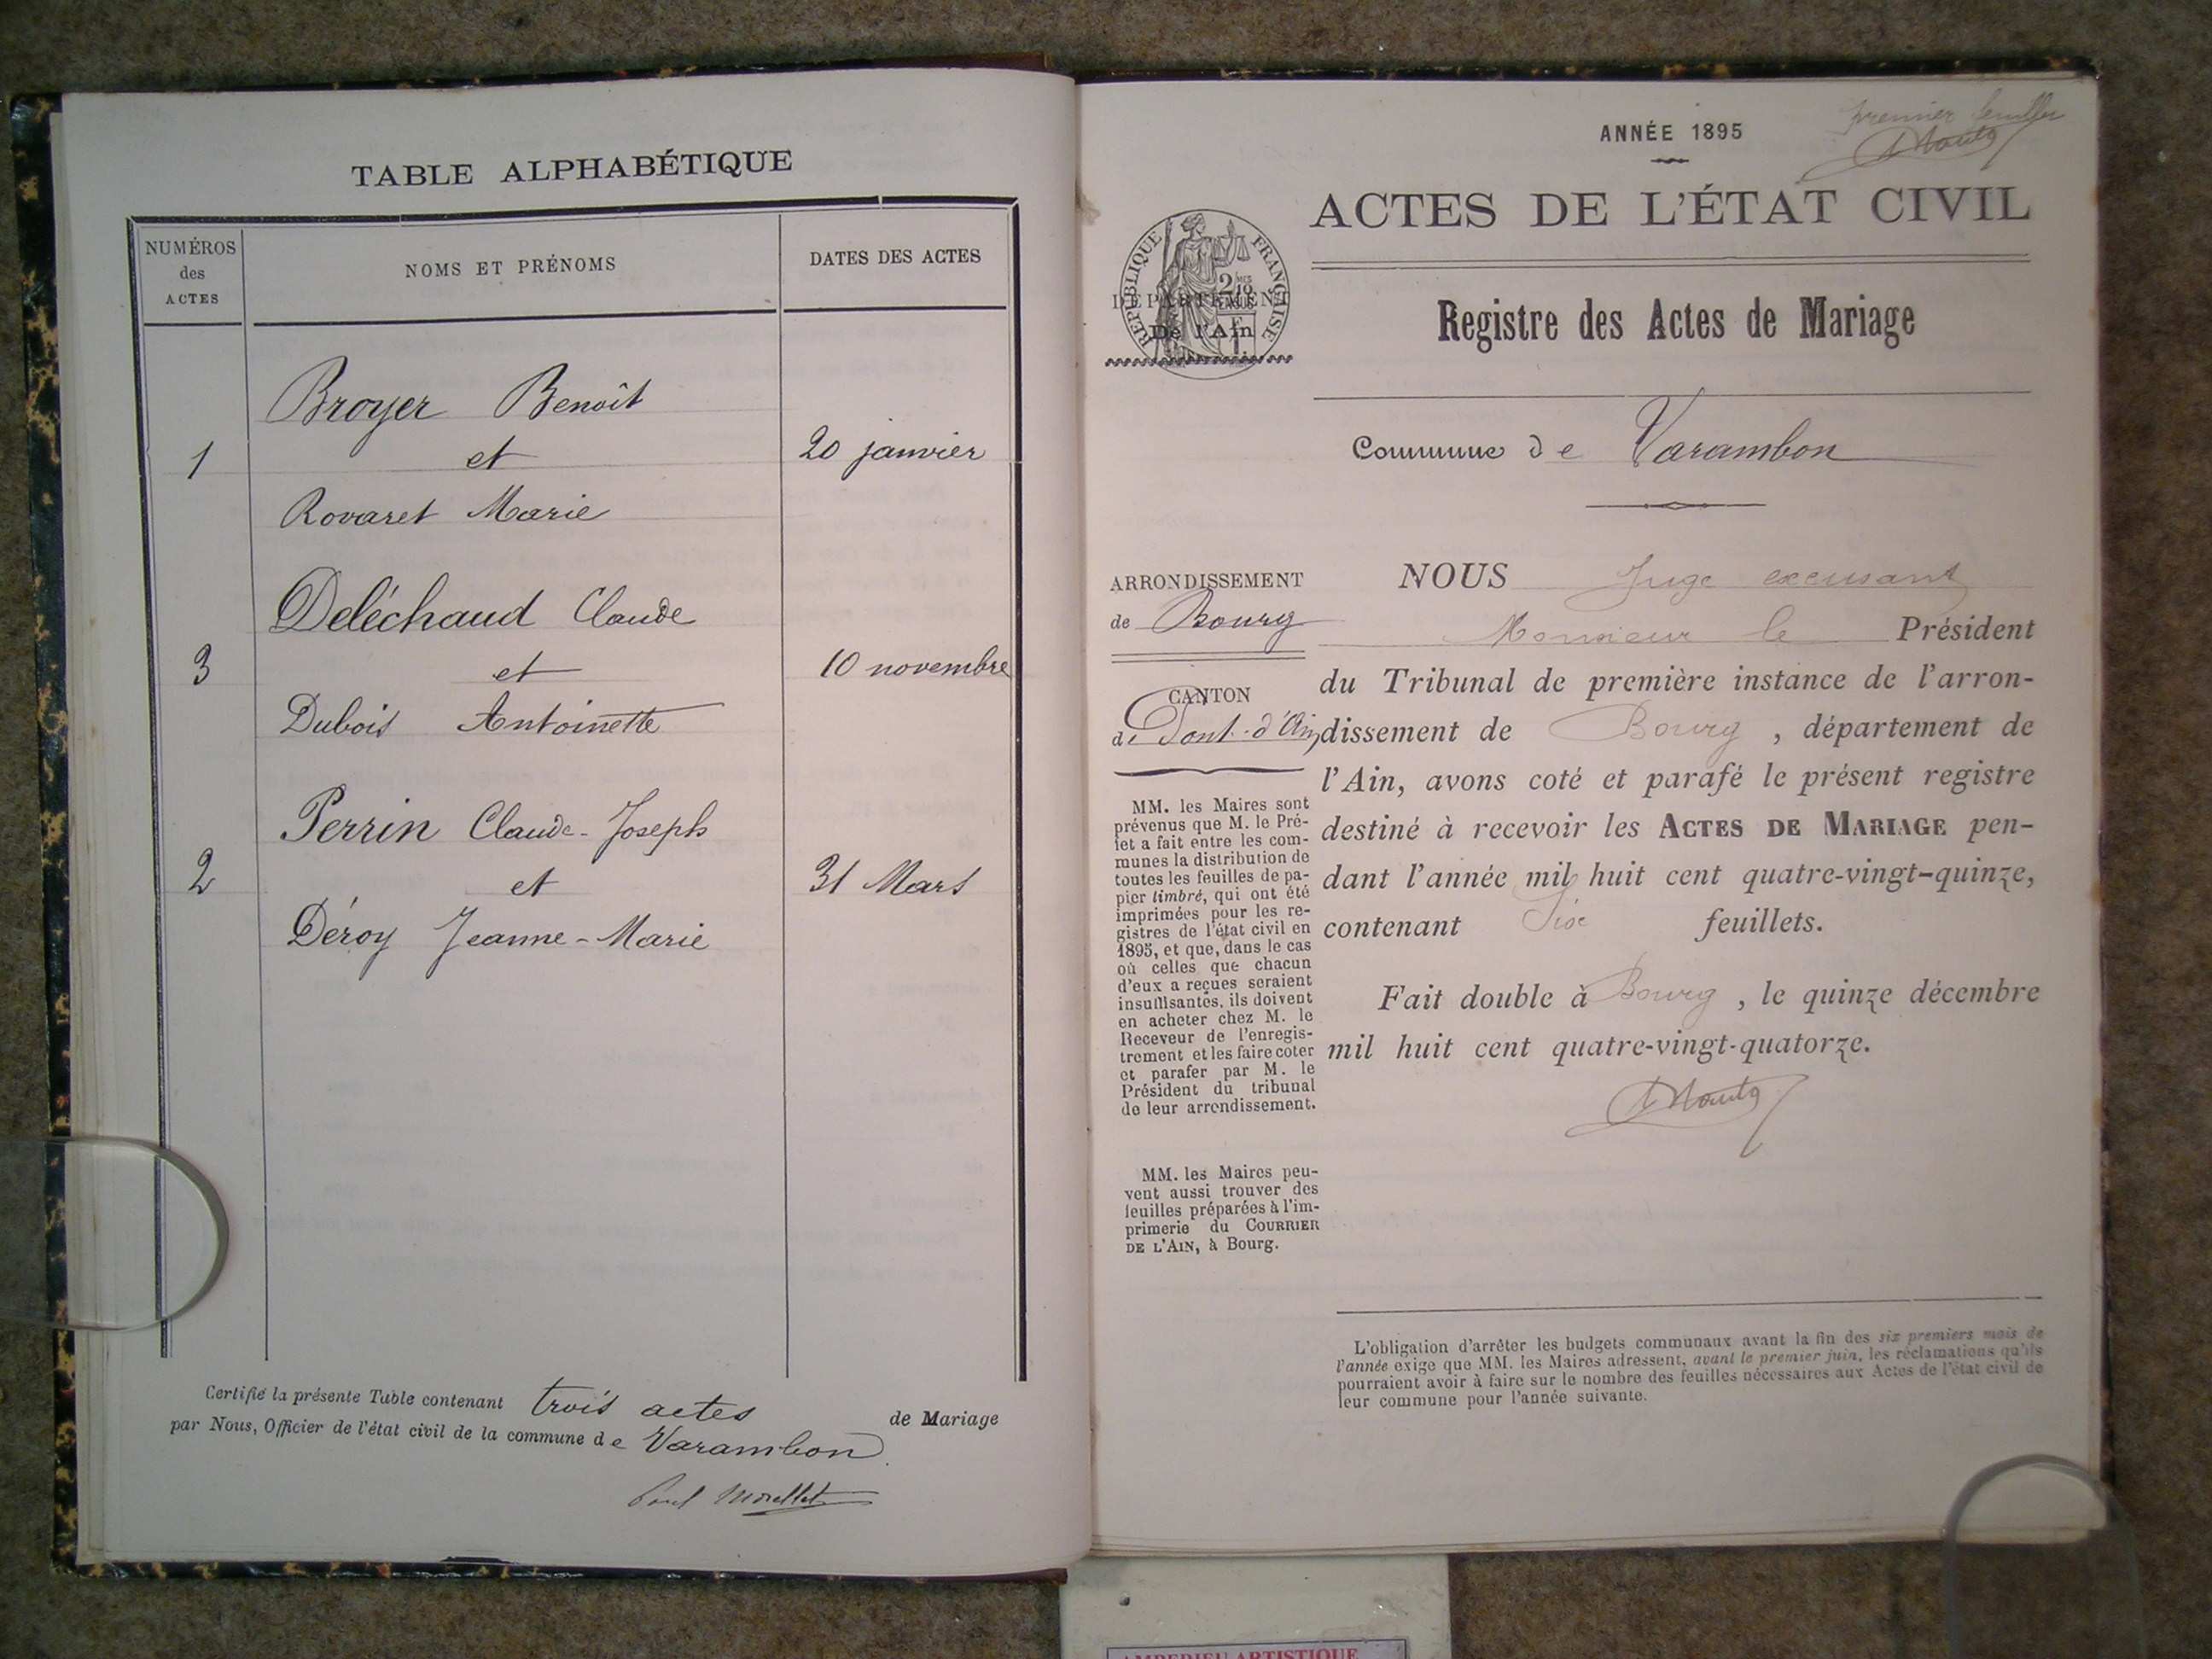 TABLE ALPHABÉTIQUE
NUMÉROS
des
ACTES
NOMS ET PRÉNOMS
DATES DES ACTES
Broyer Benoît
1 et 20 janvier
Rovaret Marie
Deléchaud Claude
3 et 10 novembre
Dubois Antoinette
Perrin Claude-Joseph
2 et 31 Mars
Déroy Jeanne-Marie
Certifié la présente Table contenant trois actes de Mariage
par Nous, Officier de l'état civil de la commune de Varambon.
Paul Morellet
premier feuillet
ANNÉE 1895
ACTES DE L'ÉTAT CIVIL
RÉPUBLIQUE FRANÇAISE
DÉPARTEMENT
De l'Ain
Registre des Actes de Mariage
Commune de Varambon
ARRONDISSEMENT
de Bourg
CANTON
de Pont-d'Ain
MM. les Maires sont
prévenus que M. le Pré-
fet a fait entre les com-
munes la distribution de
toutes les feuilles de pa-
pier timbré, qui ont été
imprimées pour les re-
gistres de l'état civil en
1895, et que, dans le cas
où celles que chacun
d'eux a reçues seraient
insuffisantes, ils doivent
en acheter chez M. le
Receveur de l'enregis-
trement et les faire coter
et parafer par M. le
Président du tribunal
de leur arrondissement.
MM. les Maires peu-
vent aussi trouver des
feuilles préparées à l'im-
primerie du COURRIER
DE L'AIN, à Bourg.
NOUS Juge excusant
Monsieur le Président
du Tribunal de première instance de l'arron-
dissement de Bourg, département de
l'Ain, avons coté et parafé le présent registre
destiné à recevoir les ACTES DE MARIAGE pen-
dant l'année mil huit cent quatre-vingt-quinze,
contenant Six feuillets.
Fait double à Bourg, le quinze décembre
mil huit cent quatre-vingt-quatorze.
L'obligation d'arrêter les budgets communaux avant la fin des six premiers mois de
l'année exige que MM. les Maires adressent, avant le premier juin, les réclamations qu'ils
pourraient avoir à faire sur le nombre des feuilles nécessaires aux Actes de l'état civil de
leur commune pour l'année suivante.
AMBERIEU ARTISTIQUE